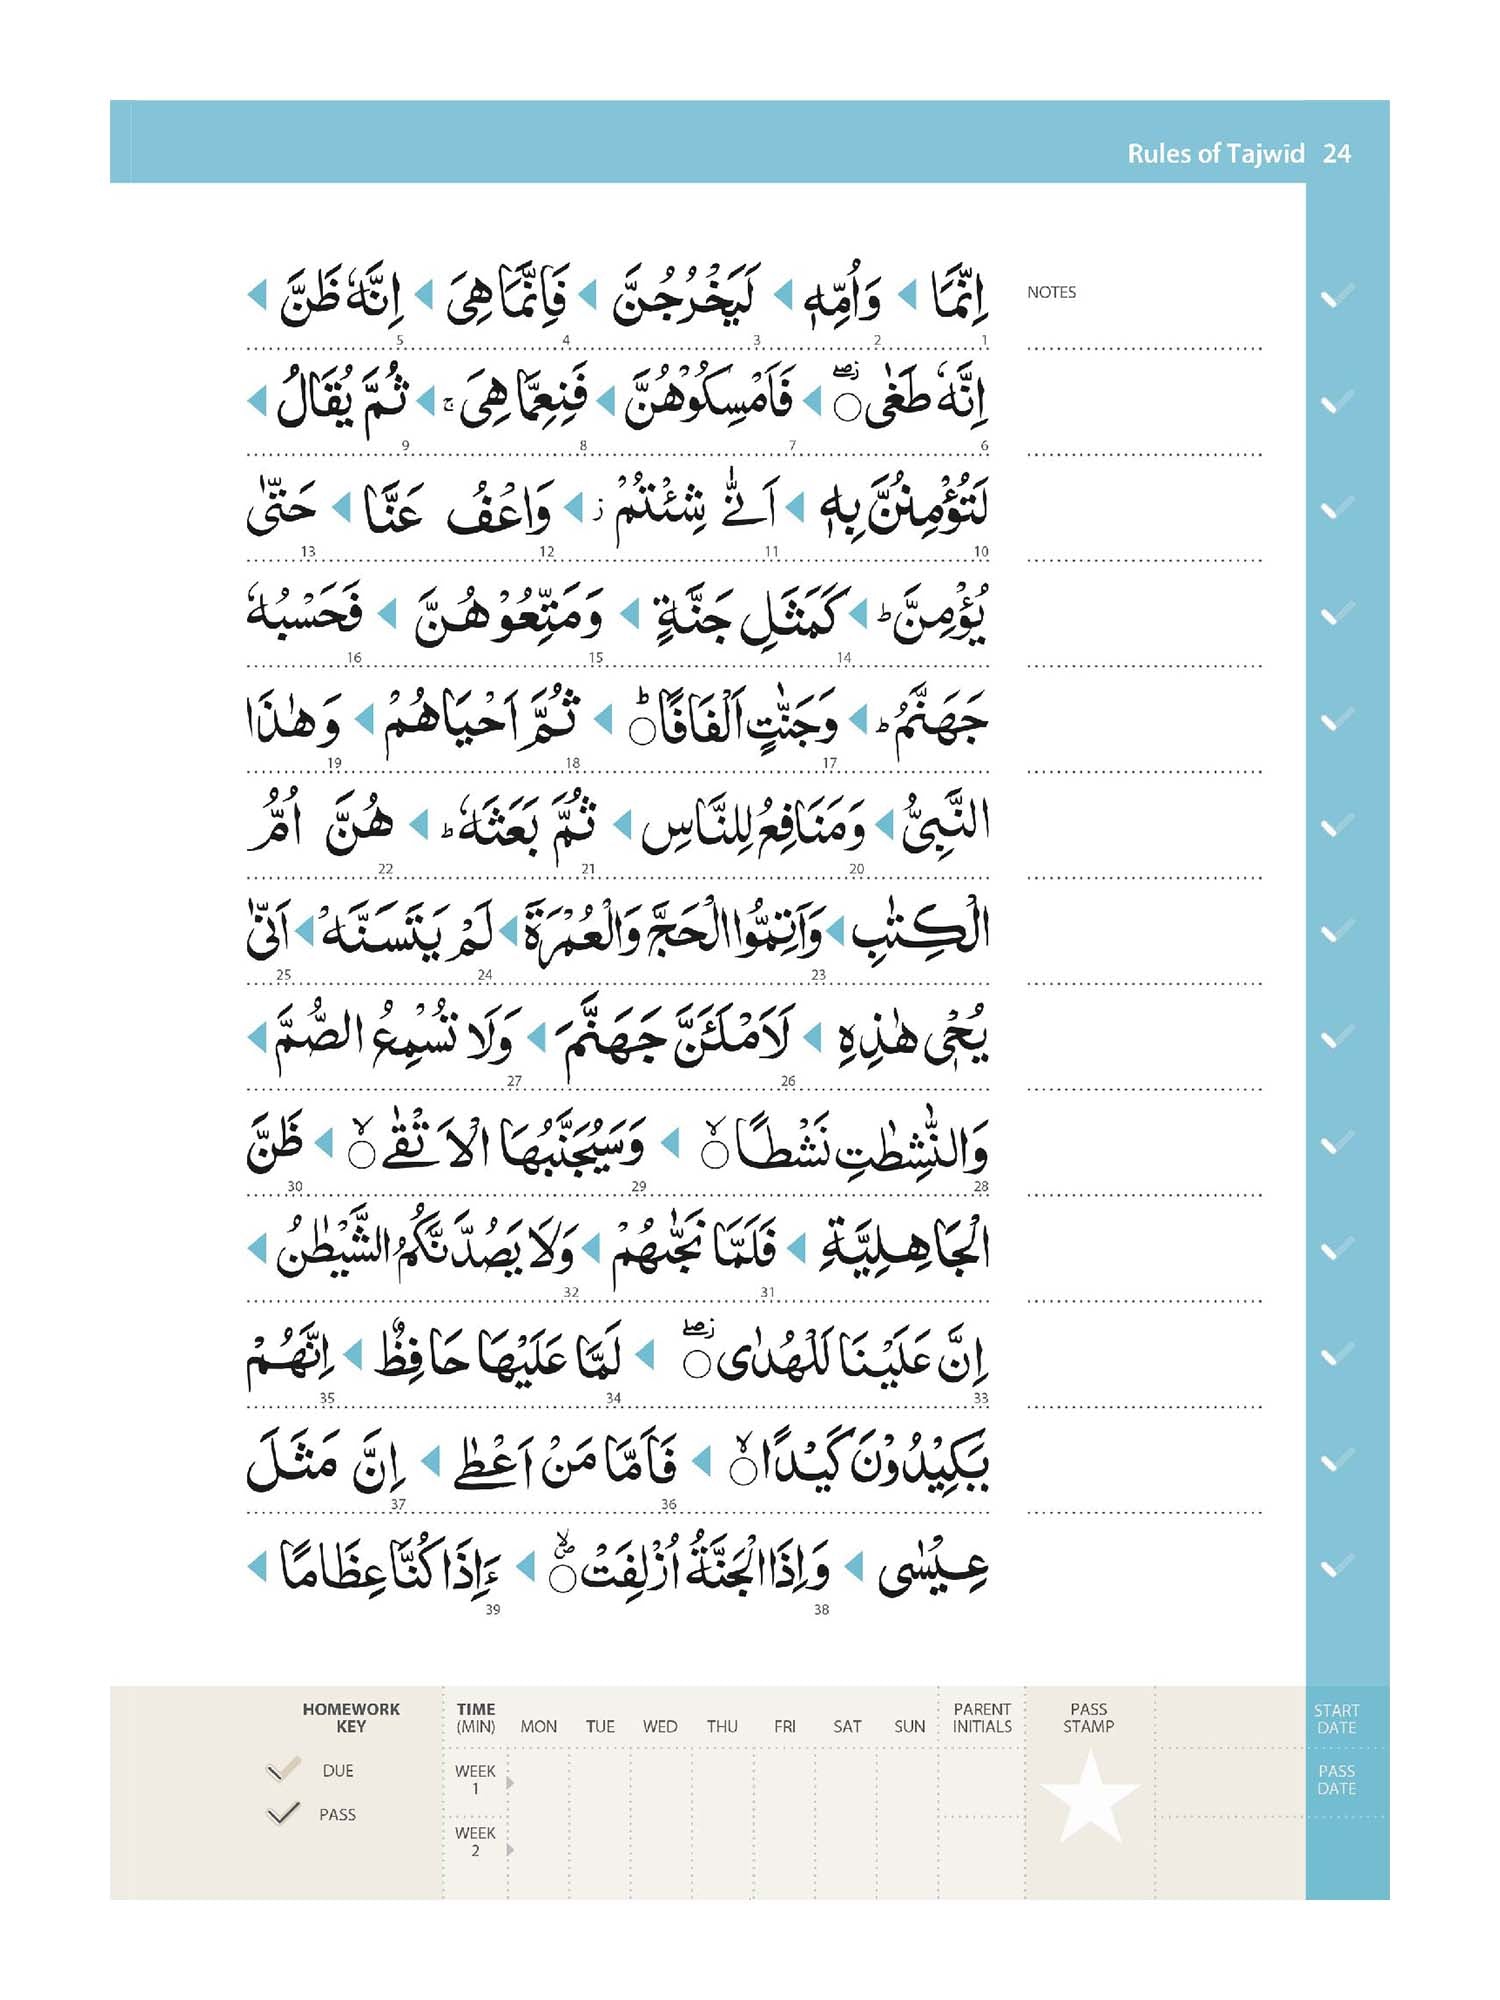 Rules of Tajwīd 24
NOTES
اِنَّمَا ◀ وَاُمِّهٖ ◀ لَيَخْرُجُنَّ ◀ فَاِنَّمَا هِىَ ◀ اِنَّهٗ ظَنَّ ◀
1 2 3 4 5
اِنَّهٗ طَغٰى ۞ۖ ◀ فَاَمْسِكُوْهُنَّ ◀ فَنِعِمَّا هِىَ ۚ ◀ ثُمَّ يُقَالُ ◀
6 7 8 9
لَتُؤْمِنُنَّ بِهٖ ◀ اَنّٰى شِئْتُمْ ز ◀ وَاعْفُ عَنَّا ◀ حَتّٰى
10 11 12 13
يُؤْمِنَّ ط ◀ كَمَثَلِ جَنَّةٍ ◀ وَمَتِّعُوْهُنَّ ◀ فَحَسْبُهٗ
14 15 16
جَهَنَّمُ ط ◀ وَجَنّٰتٍ اَلْفَافًا ط ◀ ثُمَّ اَحْيَاهُمْ ◀ وَهٰذَا
17 18 19
النَّبِىُّ ◀ وَمَنَافِعُ لِلنَّاسِ ◀ ثُمَّ بَعَثَهٗ ط ◀ هُنَّ اُمُّ
20 21 22
الْكِتٰبِ ◀ وَاَتِمُّوا الْحَجَّ وَالْعُمْرَةَ ◀ لَمْ يَتَسَنَّهْ ◀ اَنّٰى
23 24 25
يُحْىٖ هٰذِهِ ◀ لَاَمْلَـَٔنَّ جَهَنَّمَ ◀ وَلَا تُسْمِعُ الصُّمَّ ◀
26 27
وَالنّٰشِطٰتِ نَشْطًا لا ◀ وَسَيُجَنَّبُهَا الْاَتْقٰى لا ◀ ظَنَّ
28 29 30
الْجَاهِلِيَّةِ ◀ فَلَمَّا نَجّٰهُمْ ◀ وَلَا يَصُدَّنَّكُمُ الشَّيْطٰنُ ◀
31 32
اِنَّ عَلَيْنَا لَلْهُدٰى ۖ ◀ لَمَّا عَلَيْهَا حَافِظٌ ◀ اِنَّهُمْ
33 34 35
يَكِيْدُوْنَ كَيْدًا لا ◀ فَاَمَّا مَنْ اَعْطٰى ◀ اِنَّ مَثَلَ
36 37
عِيْسٰى ◀ وَاِذَا الْجَنَّةُ اُزْلِفَتْ لا ◀ ءَاِذَا كُنَّا عِظَامًا ◀
38 39
HOMEWORK KEY
DUE
PASS
TIME (MIN) MON TUE WED THU FRI SAT SUN
WEEK 1
WEEK 2
PARENT INITIALS
PASS STAMP
START DATE
PASS DATE